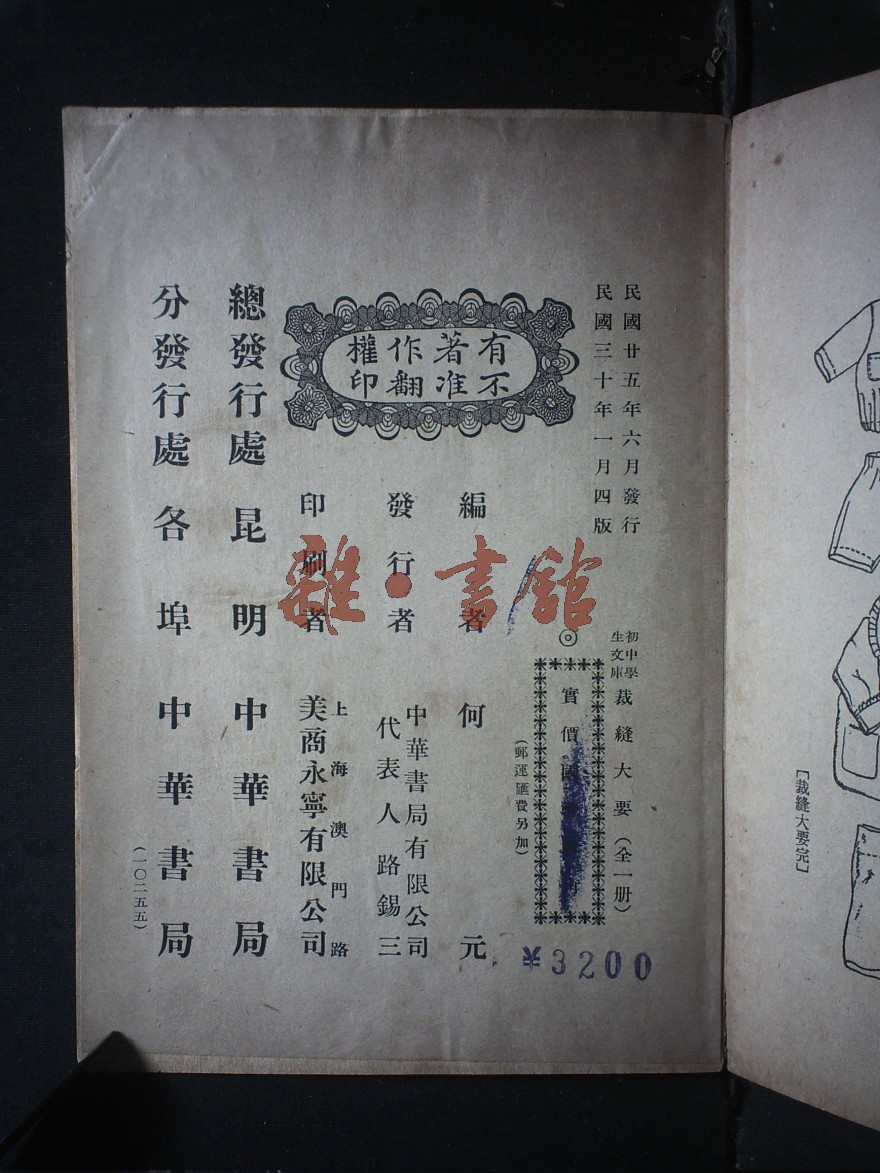 民國廿五年六月發行
民國三十年一月四版
初中學
生文庫
裁縫大要（全一册）
◎
實價國
（郵運匯費另加）
¥3200
有著作權
不准翻印
編者 何元
發行者 中華書局有限公司
代表人路錫三
印刷者 上海澳門路
美商永寧有限公司
總發行處 昆明中華書局
分發行處 各埠中華書局
（一〇二五五）
[裁縫大要完]
雜·書館